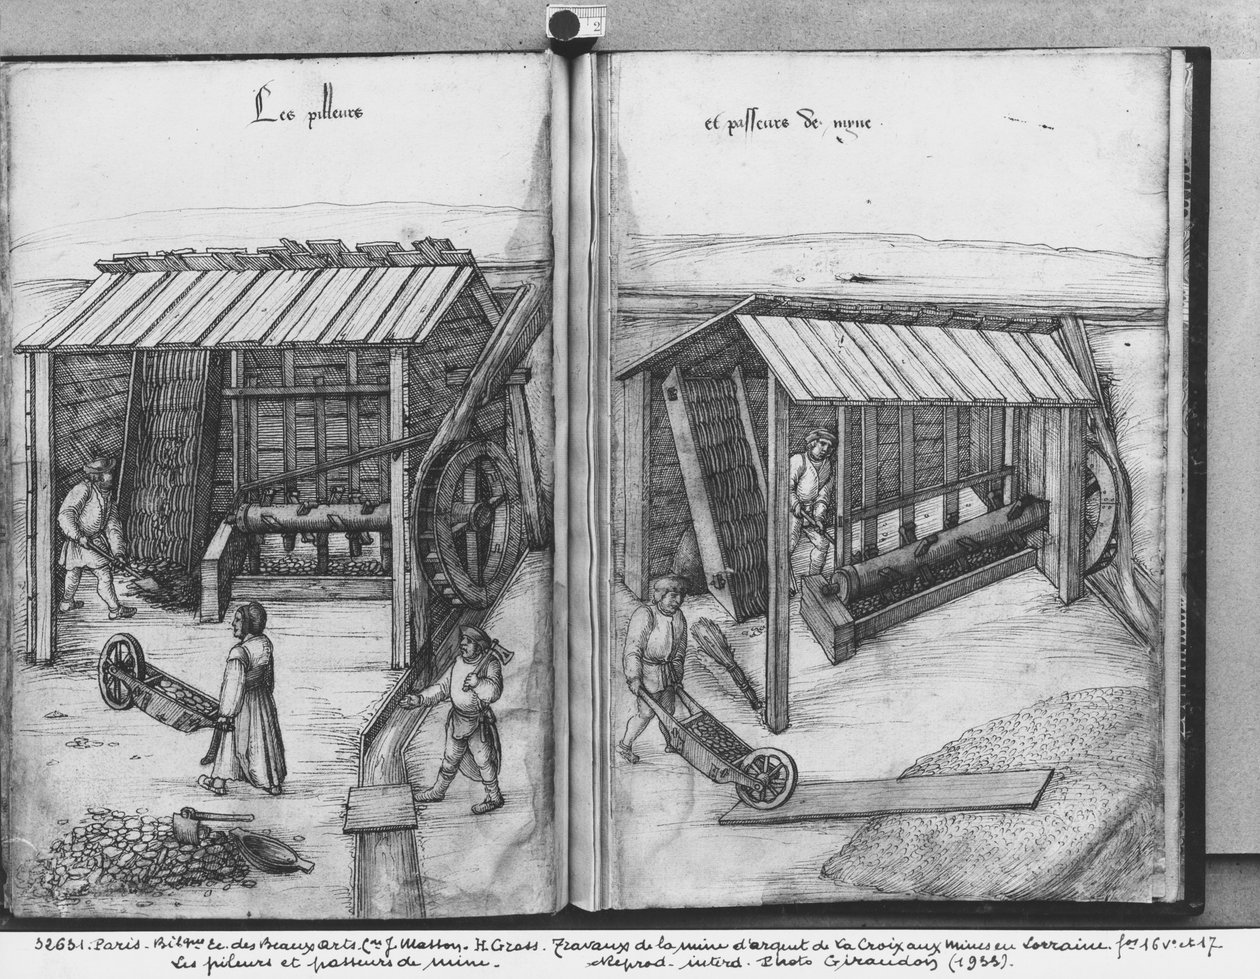 Les pilleurs
et passeurs de myne
2
32631. Paris. Bibque Ec. des Beaux arts. Con J. Masson. H. Gross. Travaux de la mine d'argent de La Croix aux Mines en Lorraine. fos 16 vo et 17
Les pileurs et passeurs de mine.
Reprod. interd. Photo Giraudon (1933).